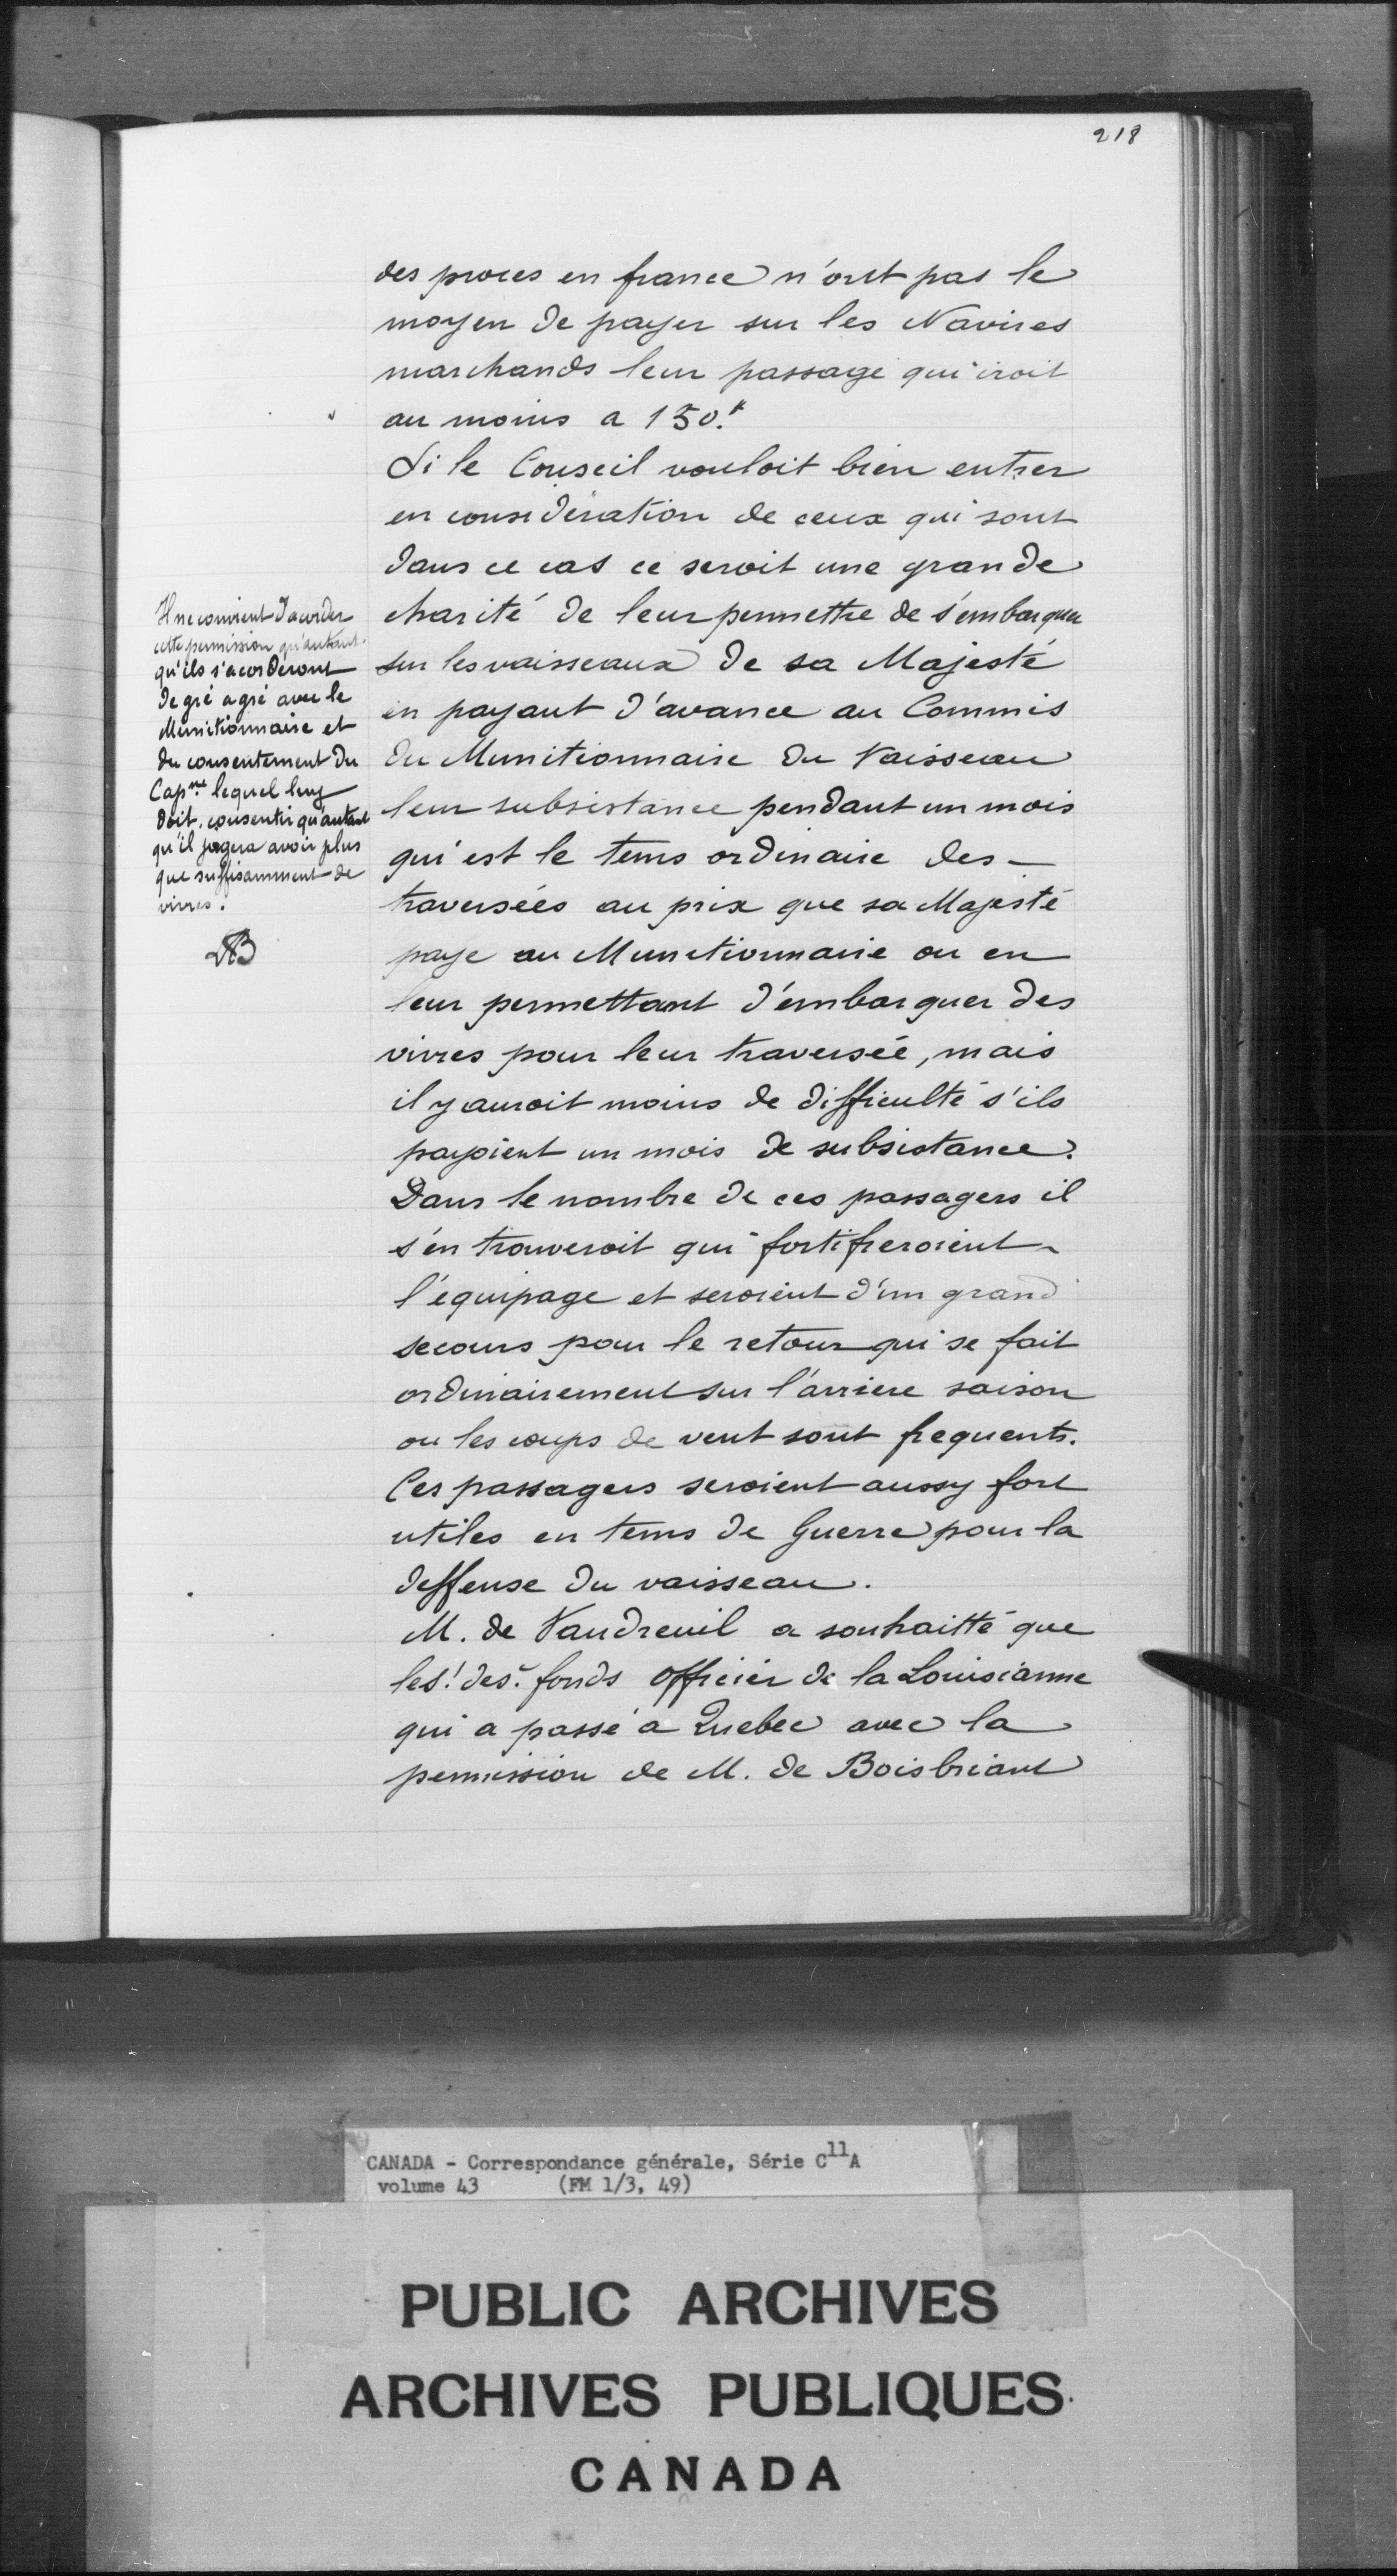 218
des proces en france n'ont pas le
moyen de payer sur les Navires
marchands leur passage qui iroit
au moins a 150.#
Si le Conseil vouloit bien entrer
en consideration de ceux qui sont
dans ce cas ce seroit une grande
charité de leur permettre de s'embarquer
sur les vaisseaux de sa Majesté
en payant d'avance au Commis
du Munitionnaire du Vaisseau
leur subsistance pendant un mois
qui est le tems ordinaire des
traversées au prix que sa Majesté
paye au Munitionnaire ou en
leur permettant d'embarquer des
vivres pour leur traversée, mais
il y auroit moins de difficulté s'ils
payoient un mois de subsistance.
Dans le nombre de ces passagers il
s'en trouveroit qui fortifieroient
l'équipage et seroient d'un grand
secours pour le retour qui se fait
ordinairement sur l'arriere saison
ou les coups de vent sont frequents.
Ces passagers seroient aussy fort
utiles en tems de Guerre pour la
deffense du vaisseau.
M. de Vaudreuil a souhaitté que
le s! des. fonds officier de la Louisianne
qui a passé a Quebec avec la
permission de M. de Boisbriant
Il ne convient d'acorder
cette permission qu'autant
qu'ils s'acorderont
de gré a gré avec le
Munitionnaire et
du consentement du
Cap.ne lequel luy
doit consentir qu'autant
qu'il jugera avoir plus
que suffisamment de
vivres.
CANADA - Correspondance générale, Série C11A
volume 43 (FM 1/3, 49)
PUBLIC ARCHIVES
ARCHIVES PUBLIQUES
CANADA